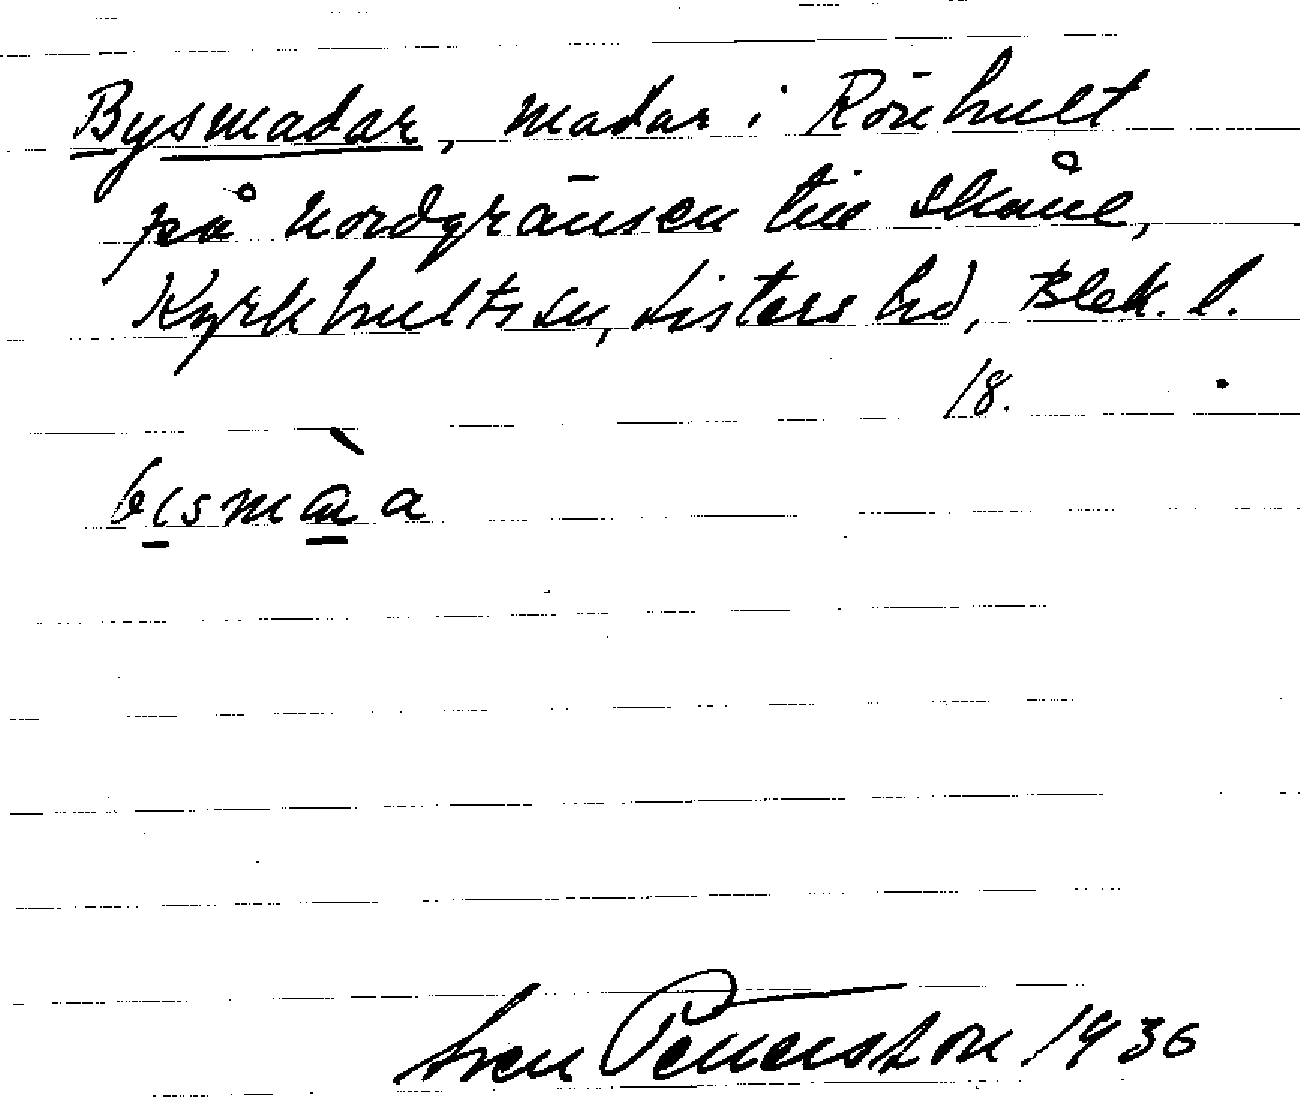 Bysmadar, madar i Rönhult
på nordgränsen till Skåne,
Kyrkhults sn, Listers hd, Blek. l.
18.
bismàa
Sven Pettersson 1936